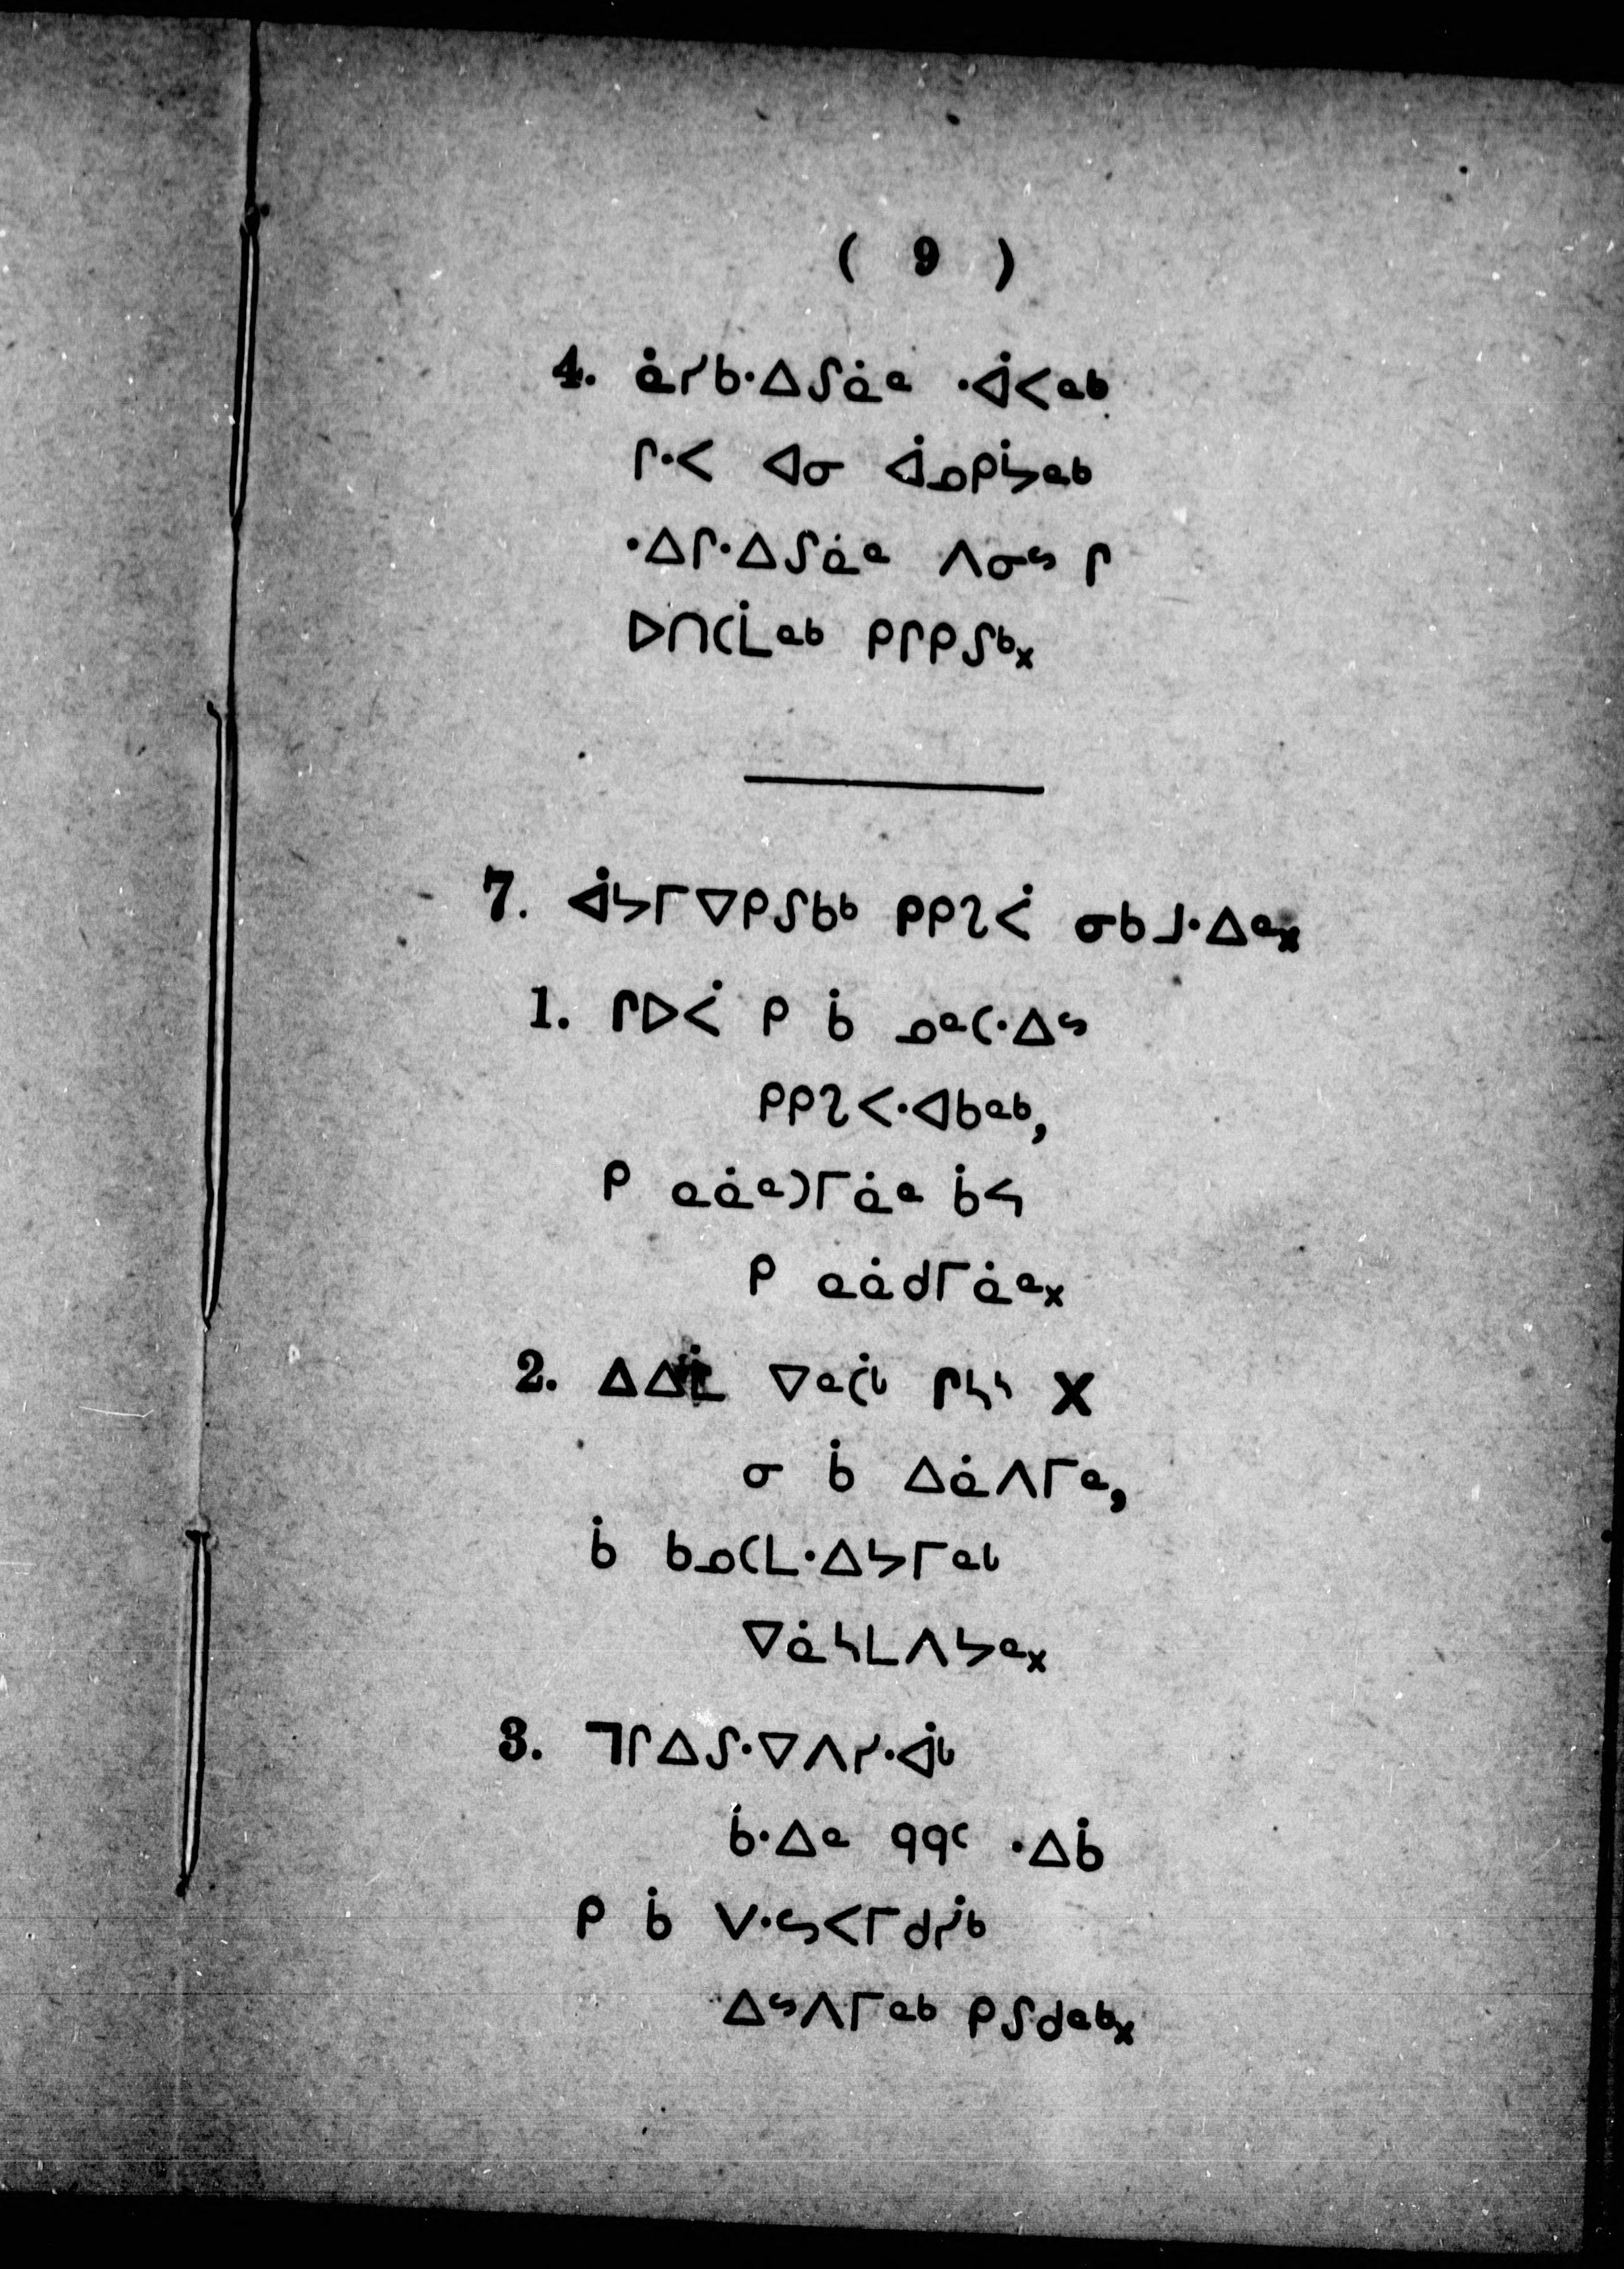 ( 9 )
4. ᓈᓯᑲᐧᐃᔑᓈᓐ ᐧᐋᐸᓐᒃ
ᒋᐧᐸ ᐊᓂ ᐋᓄᑭᔮᓐᒃ
ᐧᐃᒋᐧᐃᔑᓈᓐ ᐱᓂᔥ ᒋ
ᐅᑎᑕᒫᓐᒃ ᑭᒋᑭᔑᒃ᙮
7. ᐋᔭᒥᐁᑭᔑᑲᒃ ᑭᑭᔐᐹ ᓂᑲᒧᐧᐃᓐ᙮
1. ᒋᐅᐹ ᑭ ᑳ ᓄᓐᑕᐧᐃᔥ
ᑭᑭᔐᐸᐧᐊᑲᓐᒃ,
ᑭ ᓇᓈᓐᑐᒥᓈᓐ ᑳᔕ
ᑭ ᓇᓈᑯᒥᓈᓐ᙮
2. ᐃᐃᒫ ᐁᓐᑖᒡ ᒋᓴᔅ X
ᓂ ᑳ ᐃᓈᐱᒥᓐ,
ᑳ ᑲᓄᑕᒪᐧᐃᔭᒥᓐᒡ
ᐁᓈᓴᒪᐱᔭᓐ᙮
3. ᒣᒋᐃᔑᐧᐁᐱᓯᐧᐋᒡ
ᑳᐧᐃᓐ ᑫᑫᑦ ᐧᐃᑳ
ᑭ ᑳ ᐯᐧᔕᐸᒥᑯᓰᒃ
ᐃᔥᐱᒥᓐᒃ ᑭᔑᑯᓐᒃ᙮